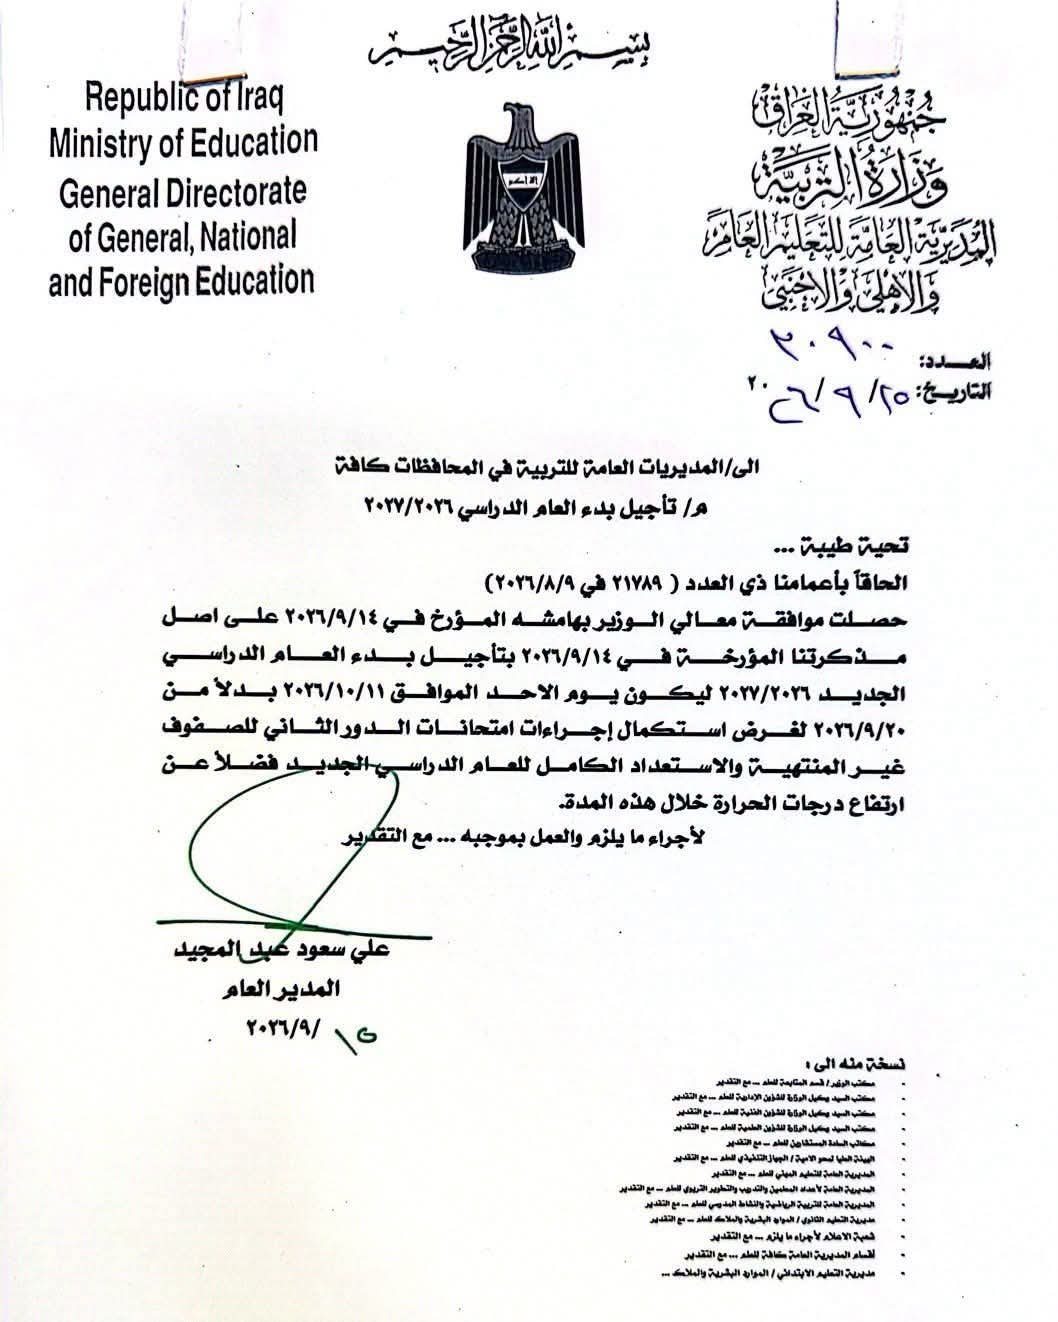 بسم الله الرحمن الرحيم
Republic of Iraq
Ministry of Education
General Directorate
of General, National
and Foreign Education
جمهورية العراق
وزارة التربية
المديرية العامة للتعليم العام
والاهلي والاجنبي
العـــدد: ٣٠٩٠٠
التاريـخ: ٢٠٢٦/٩/١٥
الى/المديريات العامة للتربية في المحافظات كافة
م/ تأجيل بدء العام الدراسي ٢٠٢٧/٢٠٢٦
تحية طيبة ...
الحاقاً بأعمامنا ذي العدد ( ٢١٧٨٩ في ٢٠٢٦/٨/٩)
حصلت موافقة معالي الوزير بهامشه المؤرخ في ٢٠٢٦/٩/١٤ على اصل
مذكرتنا المؤرخة في ٢٠٢٦/٩/١٤ بتأجيل بدء العام الدراسي
الجديد ٢٠٢٧/٢٠٢٦ ليكون يوم الاحد الموافق ٢٠٢٦/١٠/١١ بدلاً من
٢٠٢٦/٩/٢٠ لغرض استكمال إجراءات امتحانات الدور الثاني للصفوف
غير المنتهية والاستعداد الكامل للعام الدراسي الجديد فضلاً عن
ارتفاع درجات الحرارة خلال هذه المدة.
لأجراء ما يلزم والعمل بموجبه ... مع التقدير
علي سعود عبد المجيد
المدير العام
٢٠٢٦/٩/١٥
نسخة منه الى :
- مكتب الوزير / قسم المتابعة للعلم ... مع التقدير
- مكتب السيد وكيل الوزارة للشؤون الإدارية للعلم ... مع التقدير
- مكتب السيد وكيل الوزارة للشؤون الفنية للعلم ... مع التقدير
- مكتب السيد وكيل الوزارة للشؤون العلمية للعلم ... مع التقدير
- مكاتب السادة المستشارين للعلم ... مع التقدير
- الهيئة العليا لمحو الامية / الجهاز التنفيذي للعلم ... مع التقدير
- المديرية العامة للتعليم المهني للعلم ... مع التقدير
- المديرية العامة لأعداد المعلمين والتدريب والتطوير التربوي للعلم ... مع التقدير
- المديرية العامة للتربية الرياضية والنشاط المدرسي للعلم ... مع التقدير
- مديرية التعليم الثانوي / الموارد البشرية والملاك للعلم ... مع التقدير
- شعبة الاعلام لأجراء ما يلزم ... مع التقدير
- أقسام المديرية العامة كافة للعلم ... مع التقدير
- مديرية التعليم الابتدائي / الموارد البشرية والملاك ...